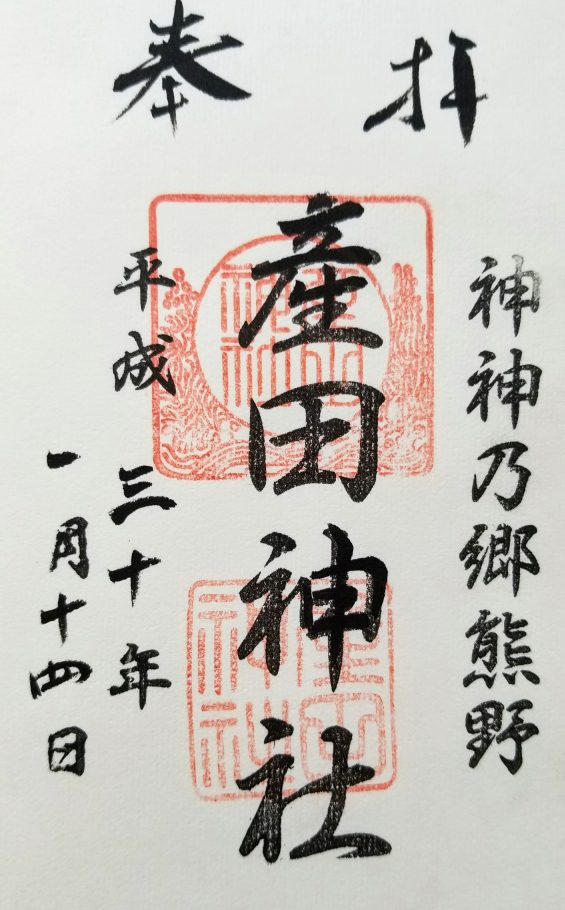 奉拝
神神乃郷熊野
産田神社
平成三十年
一月十四日